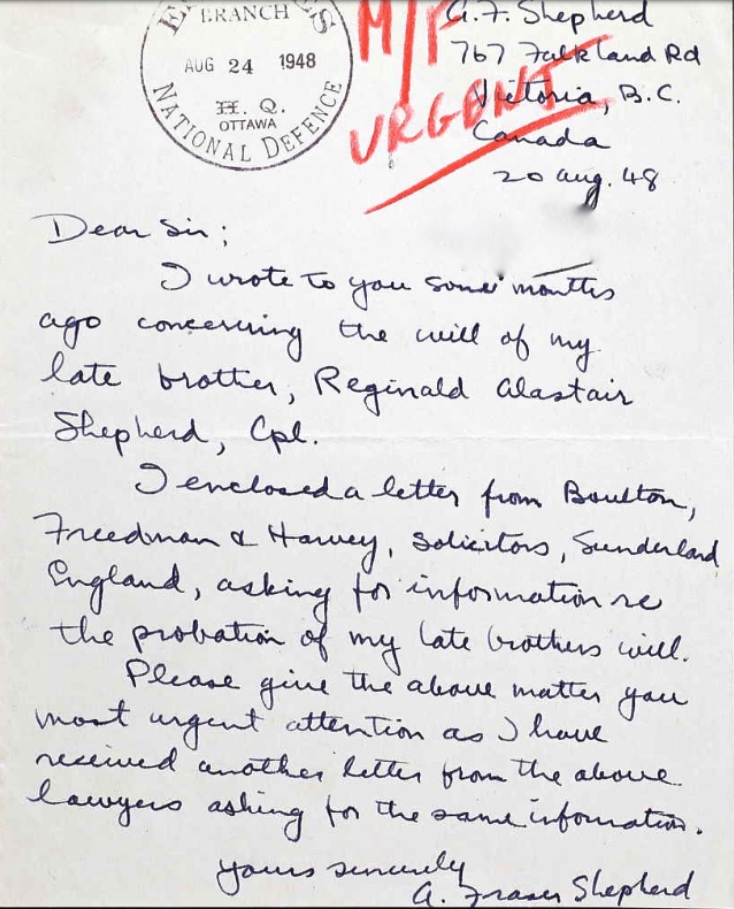 BRANCH
AUG 24 1948
H. Q.
OTTAWA
NATIONAL DEFENCE
URGENT
A. F. Shepherd
767 Falkland Rd
Victoria, B.C.
Canada
20 Aug. 48
Dear Sir;
I wrote to you some months
ago concerning the will of my
late brother, Reginald Alastair
Shepherd, Cpl.
I enclosed a letter from Boulton,
Freedman & Harvey, Solicitors, Sunderland
England, asking for information re
the probation of my late brothers will.
Please give the above matter you
most urgent attention as I have
received another letter from the above
lawyers asking for the same information.
Yours sincerely
A. Fraser Shepherd